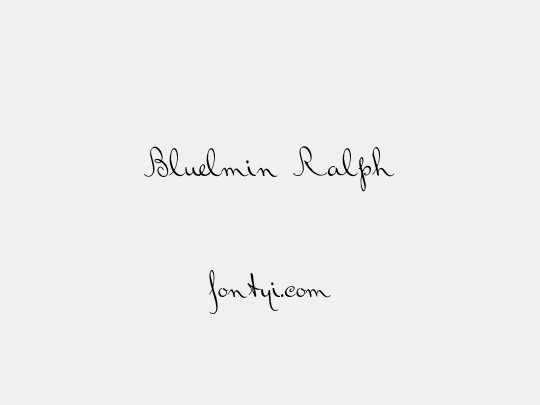 Bluelmin Ralph
fontyi.com